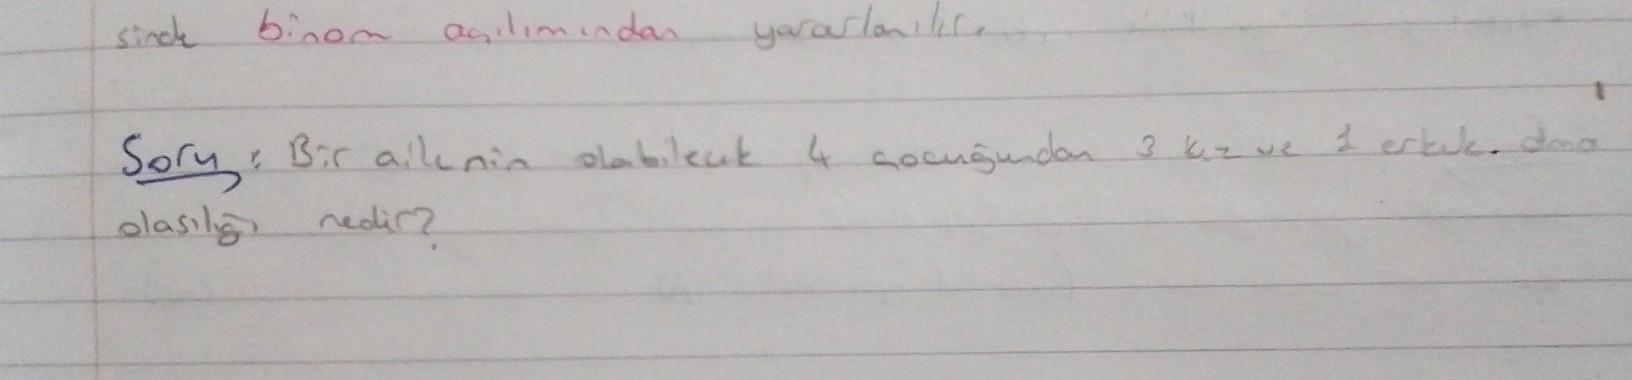 sinde binom açılımından yararlanılır.
Soru: Bir ailenin olabilecek 4 çocuğundan 3 kız ve 1 erkek olma
olasılığı nedir?